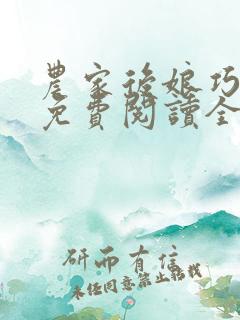 農家後娘巧
免費閱讀全
研而有信
未經同意禁止轉載